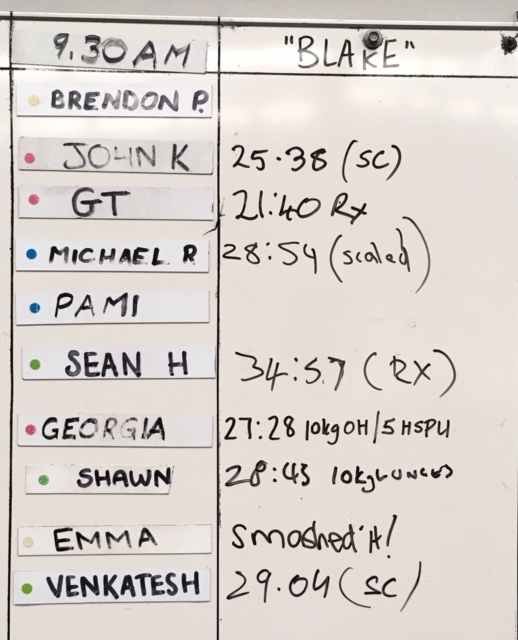 9.30AM "BLAKE"
BRENDON P.
JOHN K 25.38 (SC)
GT 21:40 Rx
MICHAEL R 28:54 (scaled)
PAMI
SEAN H 34:57 (RX)
GEORGIA 27:28 10kg OH/5 HSPU
SHAWN 28:43 10kg LUNGES
EMMA Smashed it!
VENKATESH 29.04 (SC)